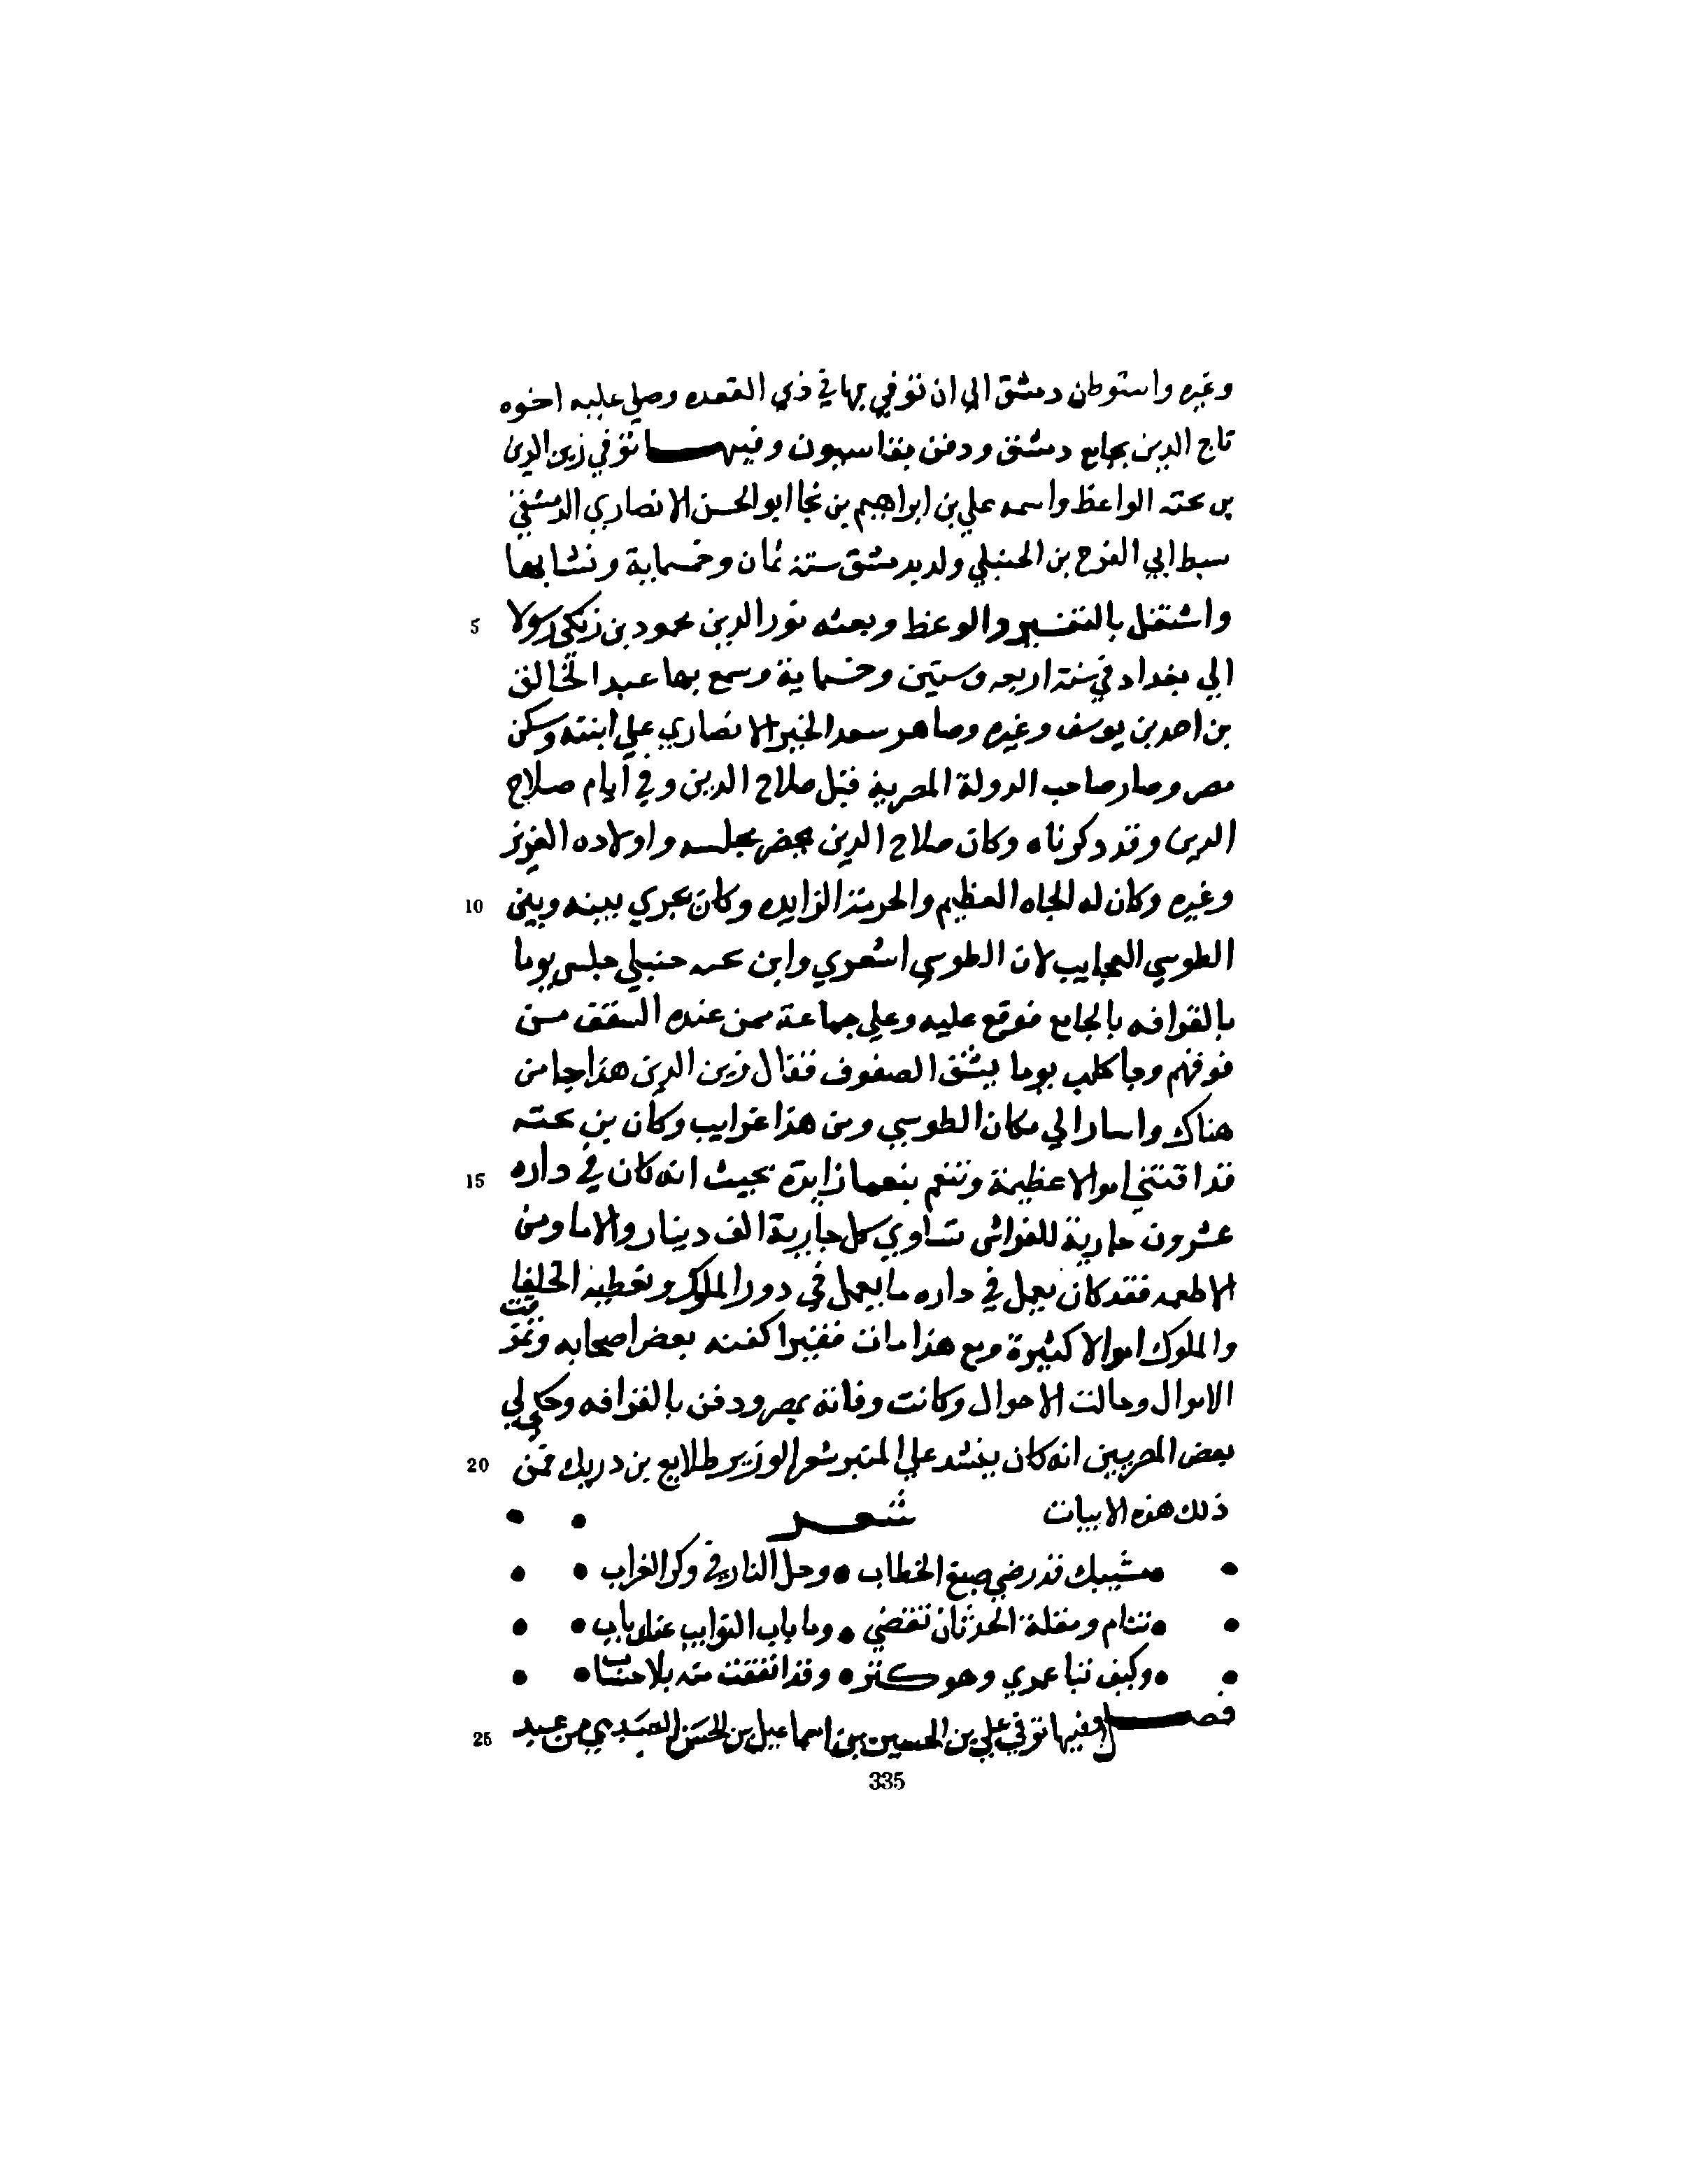 وغيره واستوطن دمشق الي ان توفي بها في ذي القعده وصلي عليه اخوه
تاج الدين بجامع دمشق ودفن بقاسيون وفيها توفي زين الدين
بن نحته الواعظ واسمه علي بن ابراهيم بن نجا ابو الحسن الانصاري الدمشقي
سبط ابي الفرج بن الحنبلي ولد بدمشق سنة ثمان وخمسماية ونشا بها
واشتغل بالتفسير والوعظ وبعثه نور الدين محمود بن زنكي رسولا 5
الي بغداد في سنة اربعه وستين وخمسماية وسمع بها عبد الخالق
بن احمد بن يوسف وغيره وصاهر سعد الخير الانصاري علي ابنته وسكن
مصر وصار صاحب الدولة المصرية قبل صلاح الدين وفي أيام صلاح
الدين وقد ذكرناه وكان صلاح الدين يحضر مجلسه واولاده العزيز
وغيره وكان له الجاه العظيم والحرمة الزايده وكان يجري بينه وبين 10
الطوسي العجايب لان الطوسي اشعري وابن نحيه حنبلي جلس يوما
بالقرافه بالجامع فوقع عليه وعلي جماعة ممن عنده السقف من
فوقهم وجا كلب يوما يشق الصفوف فقال زين الدين هذا جا من
هناك واسار الي مكان الطوسي ومن هذا غرايب وكان بن نحته
قد اقتني اموالا عظيمة وتنعم بنعما زايدة بحيث انه كان في داره 15
عشرون جارية للفراش تساوي كل جارية الف دينار والاما ومن
الاطعمه فقد كان يعمل في داره ما يعمل في دور الملوك وتعطيه الخلفا
والملوك اموالا كثيرة ومع هذا مات فقيرا كفنه بعض اصحابه وتمزقت
الاموال وحالت الاحوال وكانت وفاته بمصر ودفن بالقرافه وحكي لي
بعض المصريين انه كان ينشد علي المنبر شعر الوزير طلايع بن دريك فمن 20
ذلك هذه الابيات شعر
مشيبك قد رضي صبغ الخطاب • وحل الناز في وكر الغراب
تنام ومقلة الحدثان تقضي • وما باب النوايب عنك باب
وكيف نبا عمري وهو كنز • وقد انفقت منه بلا حساب
فصل وفيها توفي علي بن الحسين بن اسماعيل بن الحسن العبدي من عبد 25
335